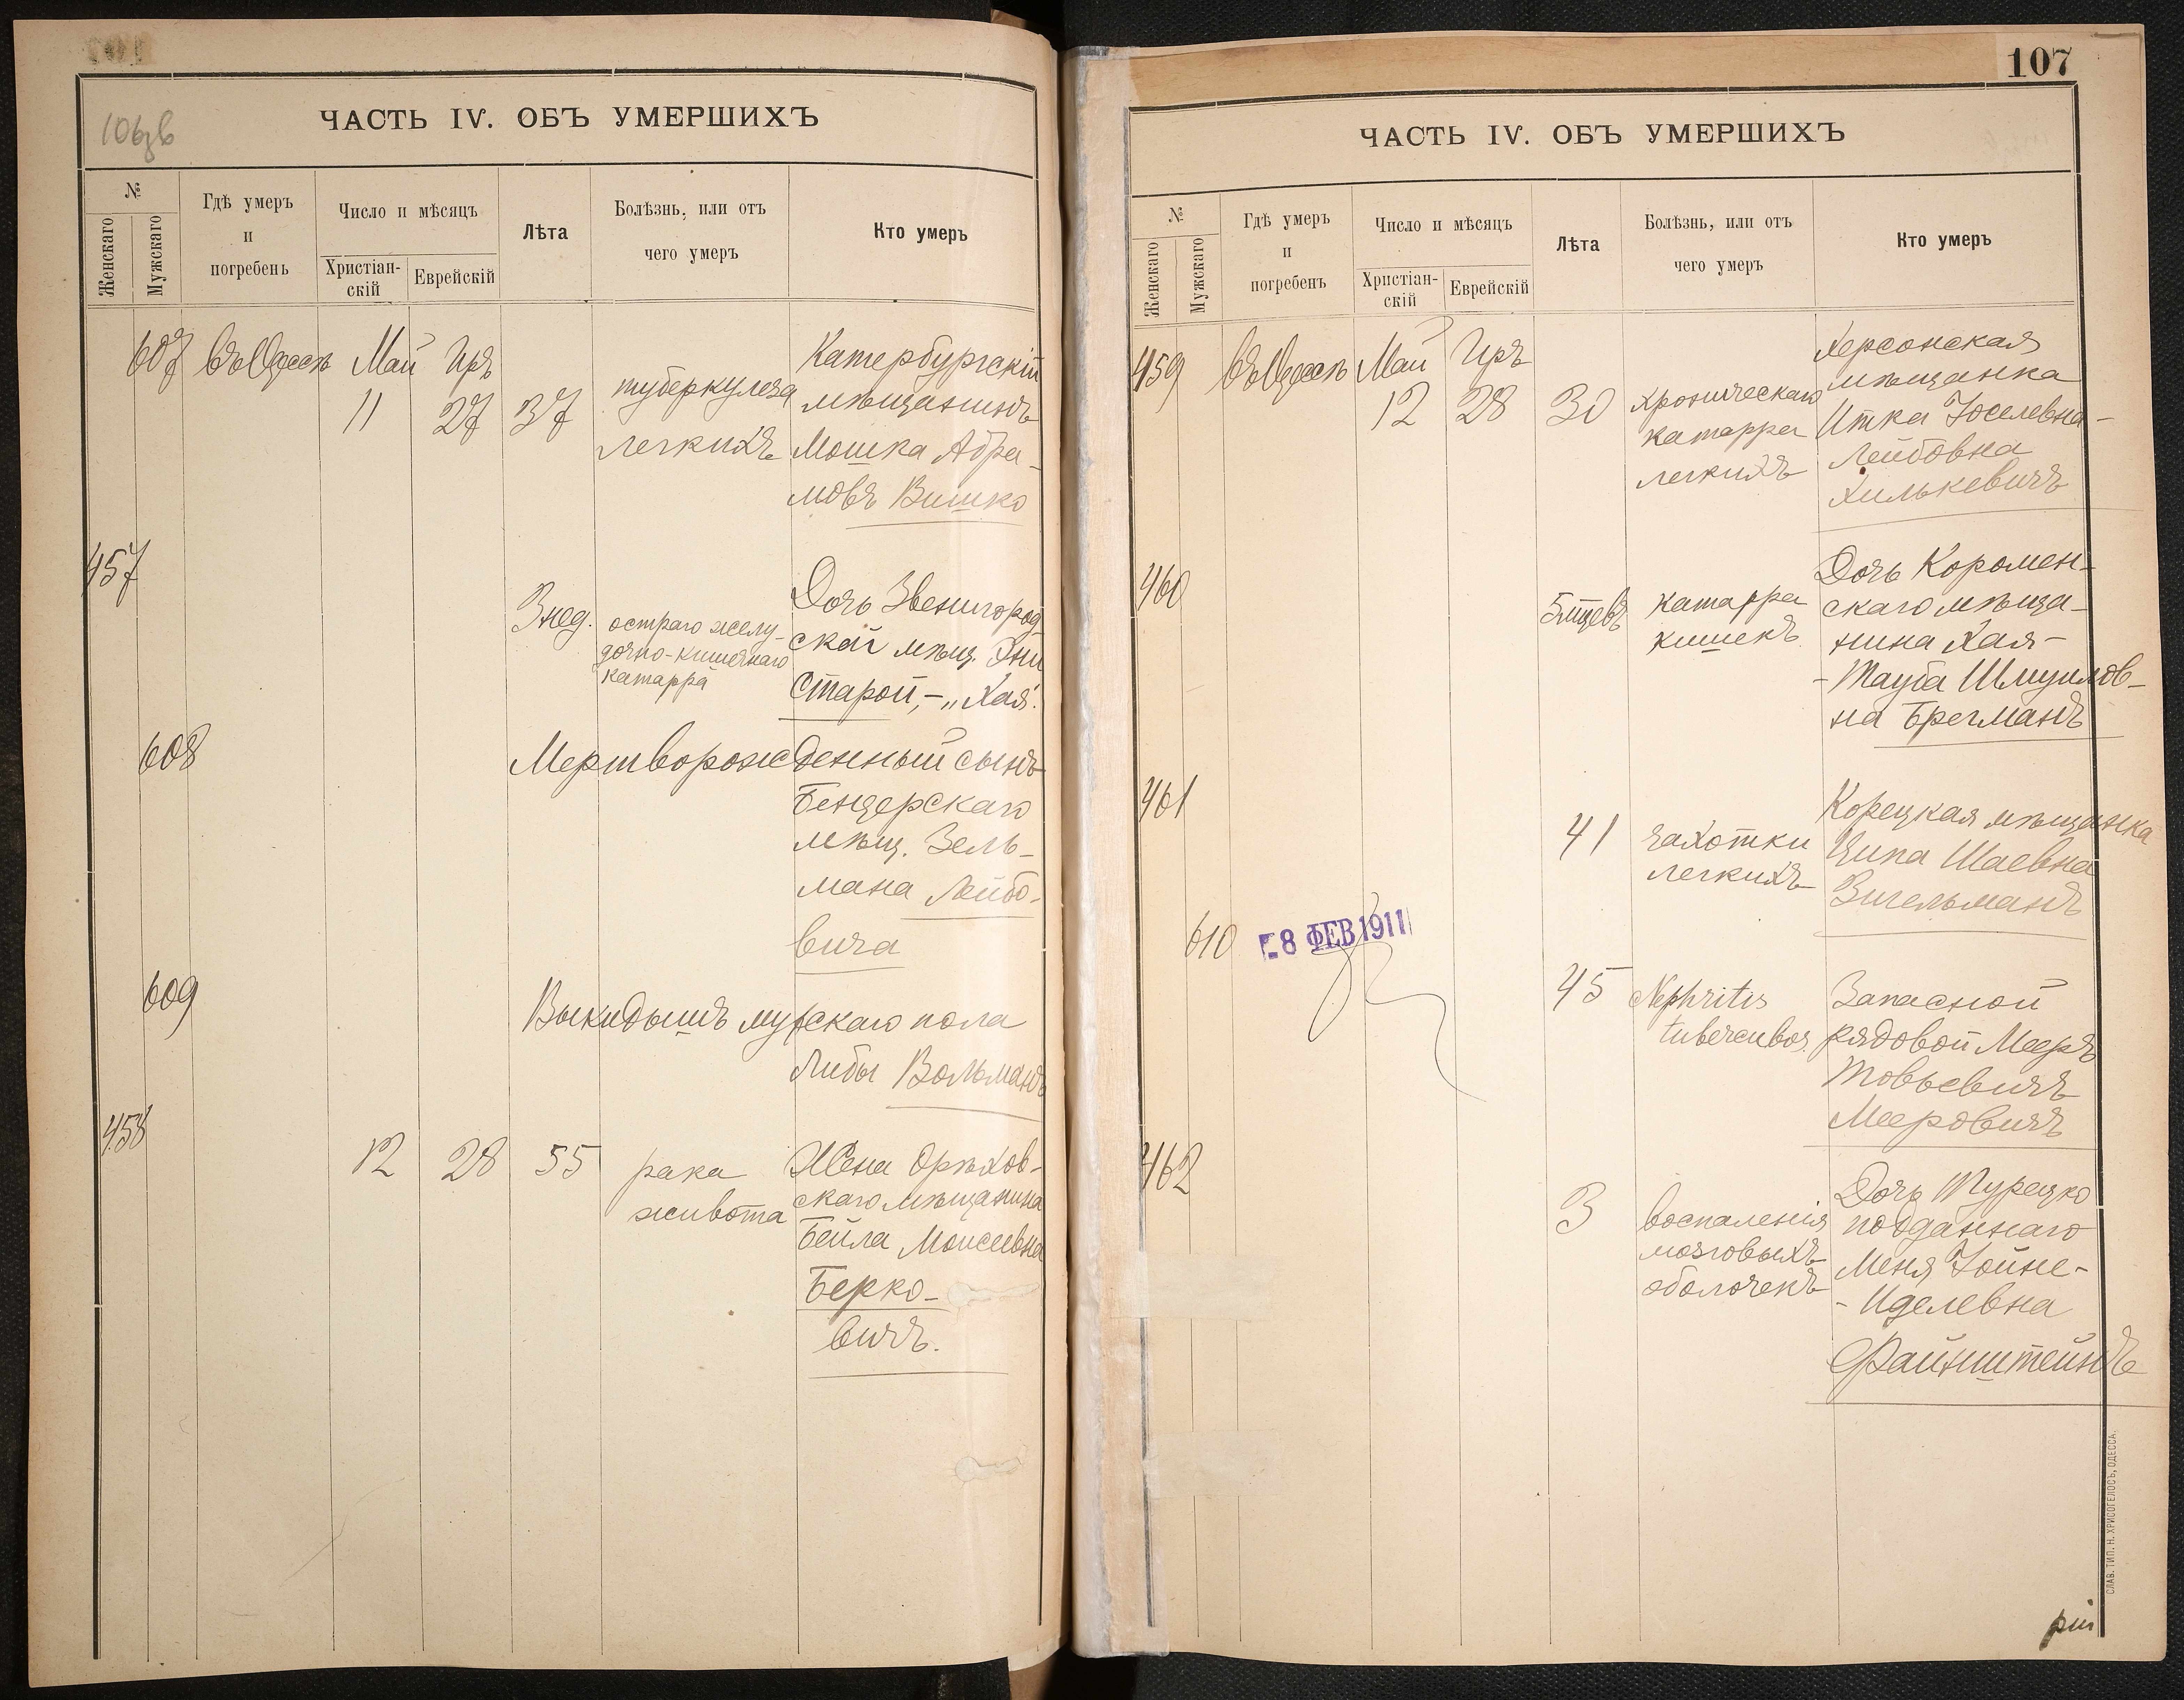 106зв
ЧАСТЬ IV. ОБЪ УМЕРШИХЪ
№
Женскаго
Мужскаго
Гдѣ умеръ
и
погребенъ
Число и мѣсяцъ
Христіан-
скій
Еврейскій
Лѣта
Болѣзнь, или отъ
чего умеръ
Кто умеръ
607 въ Одессѣ Май Иръ
11 27 37
туберкулеза
легкихъ
Катербургскій
мѣщанинъ
Мошка Абра-
мовъ Вишко
457
3 нед.
остраго желу-
дочно-кишечнаго
катарра
Дочь Звенигород-
ской мѣщ. Эни
Старой, - „Хая".
608
Мертворожденный сынъ
Бендерскаго
мѣщ. Зель-
мана Лейбо-
вича
609
Выкидышъ мужскаго пола
Либы Вольманъ
458
12 28 55
рака
живота
Жена Орѣхов-
скаго мѣщанина
Бейла Моисеевна
Берко-
вичъ.
107
ЧАСТЬ IV. ОБЪ УМЕРШИХЪ
№
Женскаго
Мужскаго
Гдѣ умеръ
и
погребенъ
Число и мѣсяцъ
Христіан-
скій
Еврейскій
Лѣта
Болѣзнь, или отъ
чего умеръ
Кто умеръ
459 въ Одессѣ Май Иръ
12 28 30
хроническаго
катарра
легкихъ
Херсонская
мѣщанка
Итка Іоселевна-
Лейбовна
Хилькевичъ
460
5 мцевъ
катарра
кишекъ
Дочь Коромен-
скаго мѣща-
нина Хая-
-Тауба Шмуилов-
на Брегманъ
461
41
чахотки
легкихъ
Корецкая мѣщанка
Ципа Шаевна
Вигельманъ
610
-8 ФЕВ 1911
45
Nephritis
tubercubos.
Запасной
рядовой Мееръ
Товьевичъ
Мееровичъ
462
3
воспаленія
мозговыхъ
оболочекъ
Дочь Турецко
подданнаго
Меня Іойне-
-Иделевна
Файнштейнъ
СЛАВ. ТИП. Н. ХРИСОГЕЛОСЪ, ОДЕССА.